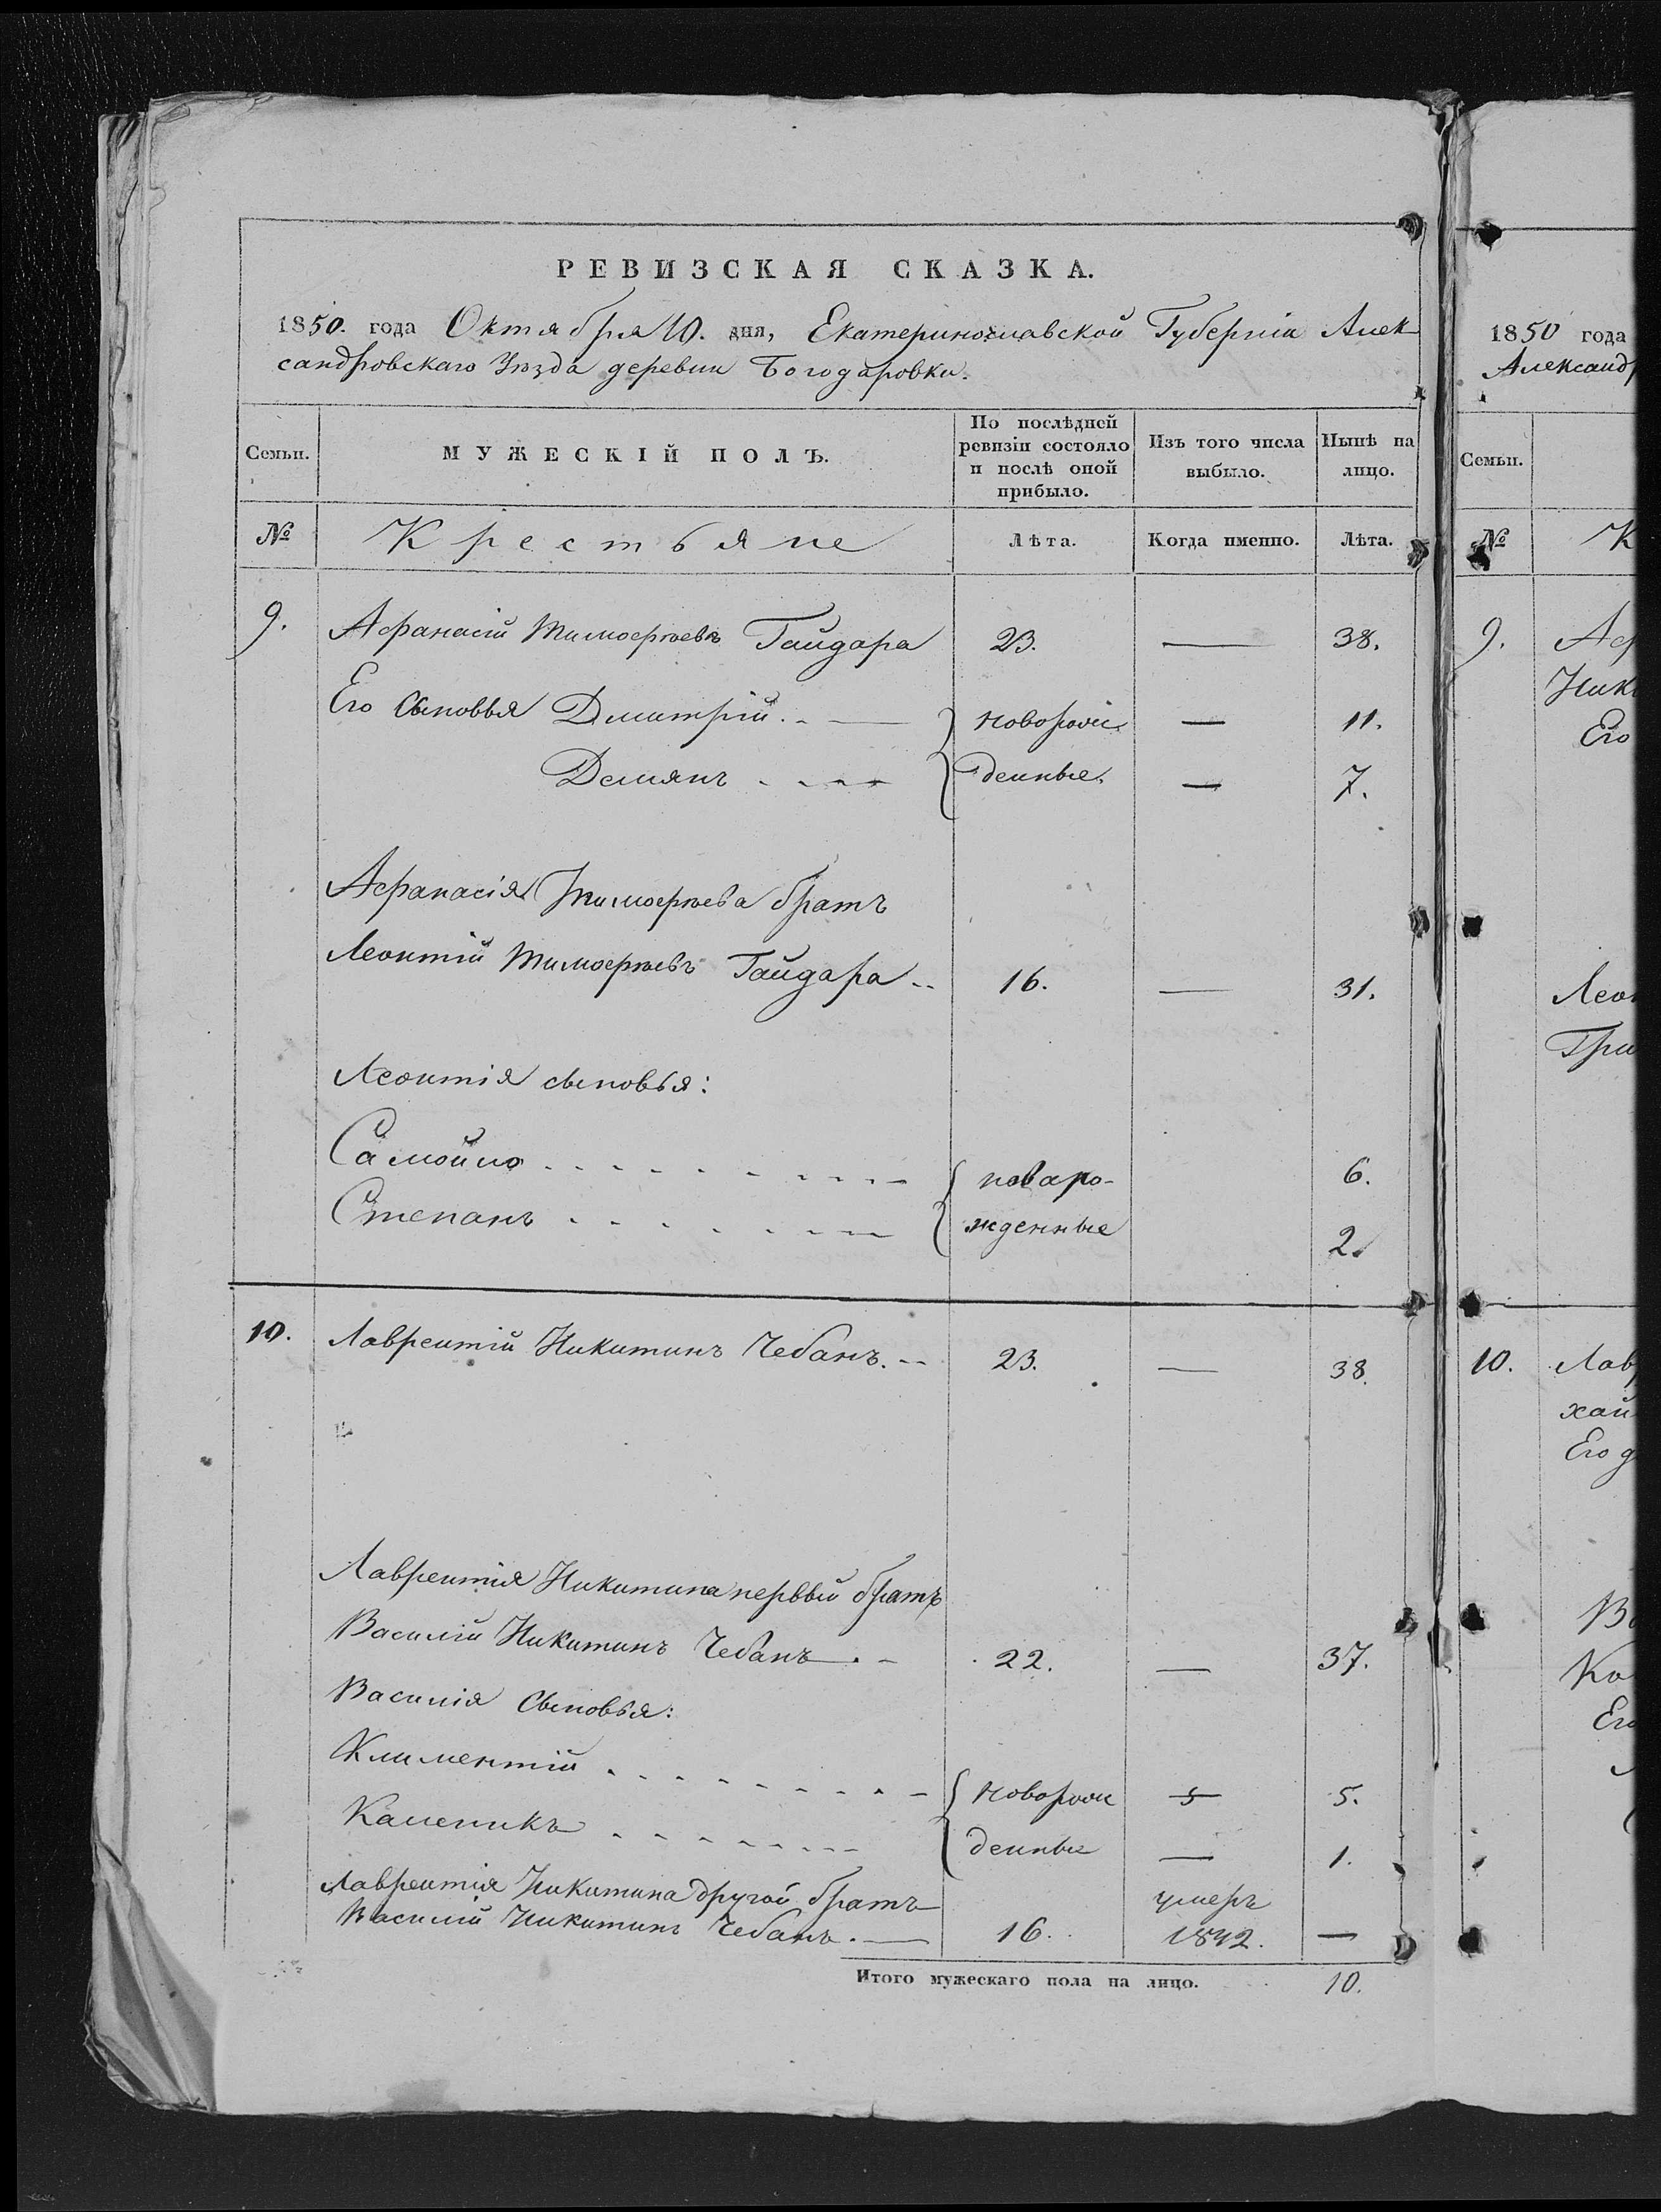 РЕВИЗСКАЯ СКАЗКА.
1850. года Октября 10. дня, Екатеринославской Губерніи Алек
сандровскаго Уѣзда деревни Богодаровки.
Семьи. МУЖЕСКІЙ ПОЛЪ. По послѣдней ревизіи состояло и послѣ оной прибыло. Изъ того числа выбыло. Нынѣ на лицо.
№ Крестьяне Лѣта. Когда именно. Лѣта.
9. Афанасій Тимофѣевъ Гайдара 23. — 38.
Его Сыновья Дмитрій. - — новорож — 11.
Демянъ - - - - денные. — 7.
Афанасія Тимофѣева братъ
Леонтій Тимофѣевъ Гайдара -- 16. — 31.
Леонтія сыновья:
Самойло - - - - - - - - - новоро- 6.
Степанъ - - - - - - - жденные 2.
10. Лаврентій Никитинъ Чебанъ. -- 23. — 38.
Лаврентія Никитина первый братъ
Василій Никитинъ Чебанъ. - 22. — 37.
Василія Сыновья:
Климентій - - - - - - - - - новорож 5 5.
Каленикъ - - - - - - - - денные — 1.
Лаврентія Никитина другой братъ умеръ
Василій Никитинъ Чебанъ. — 16. 1842. —
Итого мужескаго пола на лицо. 10.
1850 года
Александр
Семьи.
№ К
9. Аф
Ник
Его
Леон
Гри
10. Лавр
хай
Его д
Ва
Ко
Его